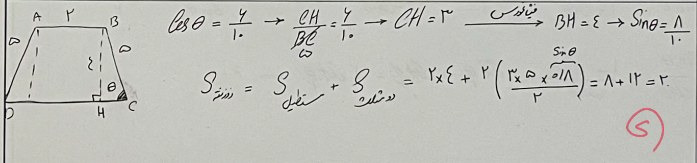 A ۲ B
۵ ٤ ۵
θ
D H C
Cos θ = ۶/۱۰ → CH/BC = ۶/۱۰ → CH = ۳ فیثاغورس → BH = ٤ → Sin θ = ۸/۱۰
۵
Sin θ
S ذوزنقه = S مستطیل + S دو مثلث = ۲×٤ + ۲(۳×۵×۰/۸ / ۲) = ۸ + ۱۲ = ۲۰